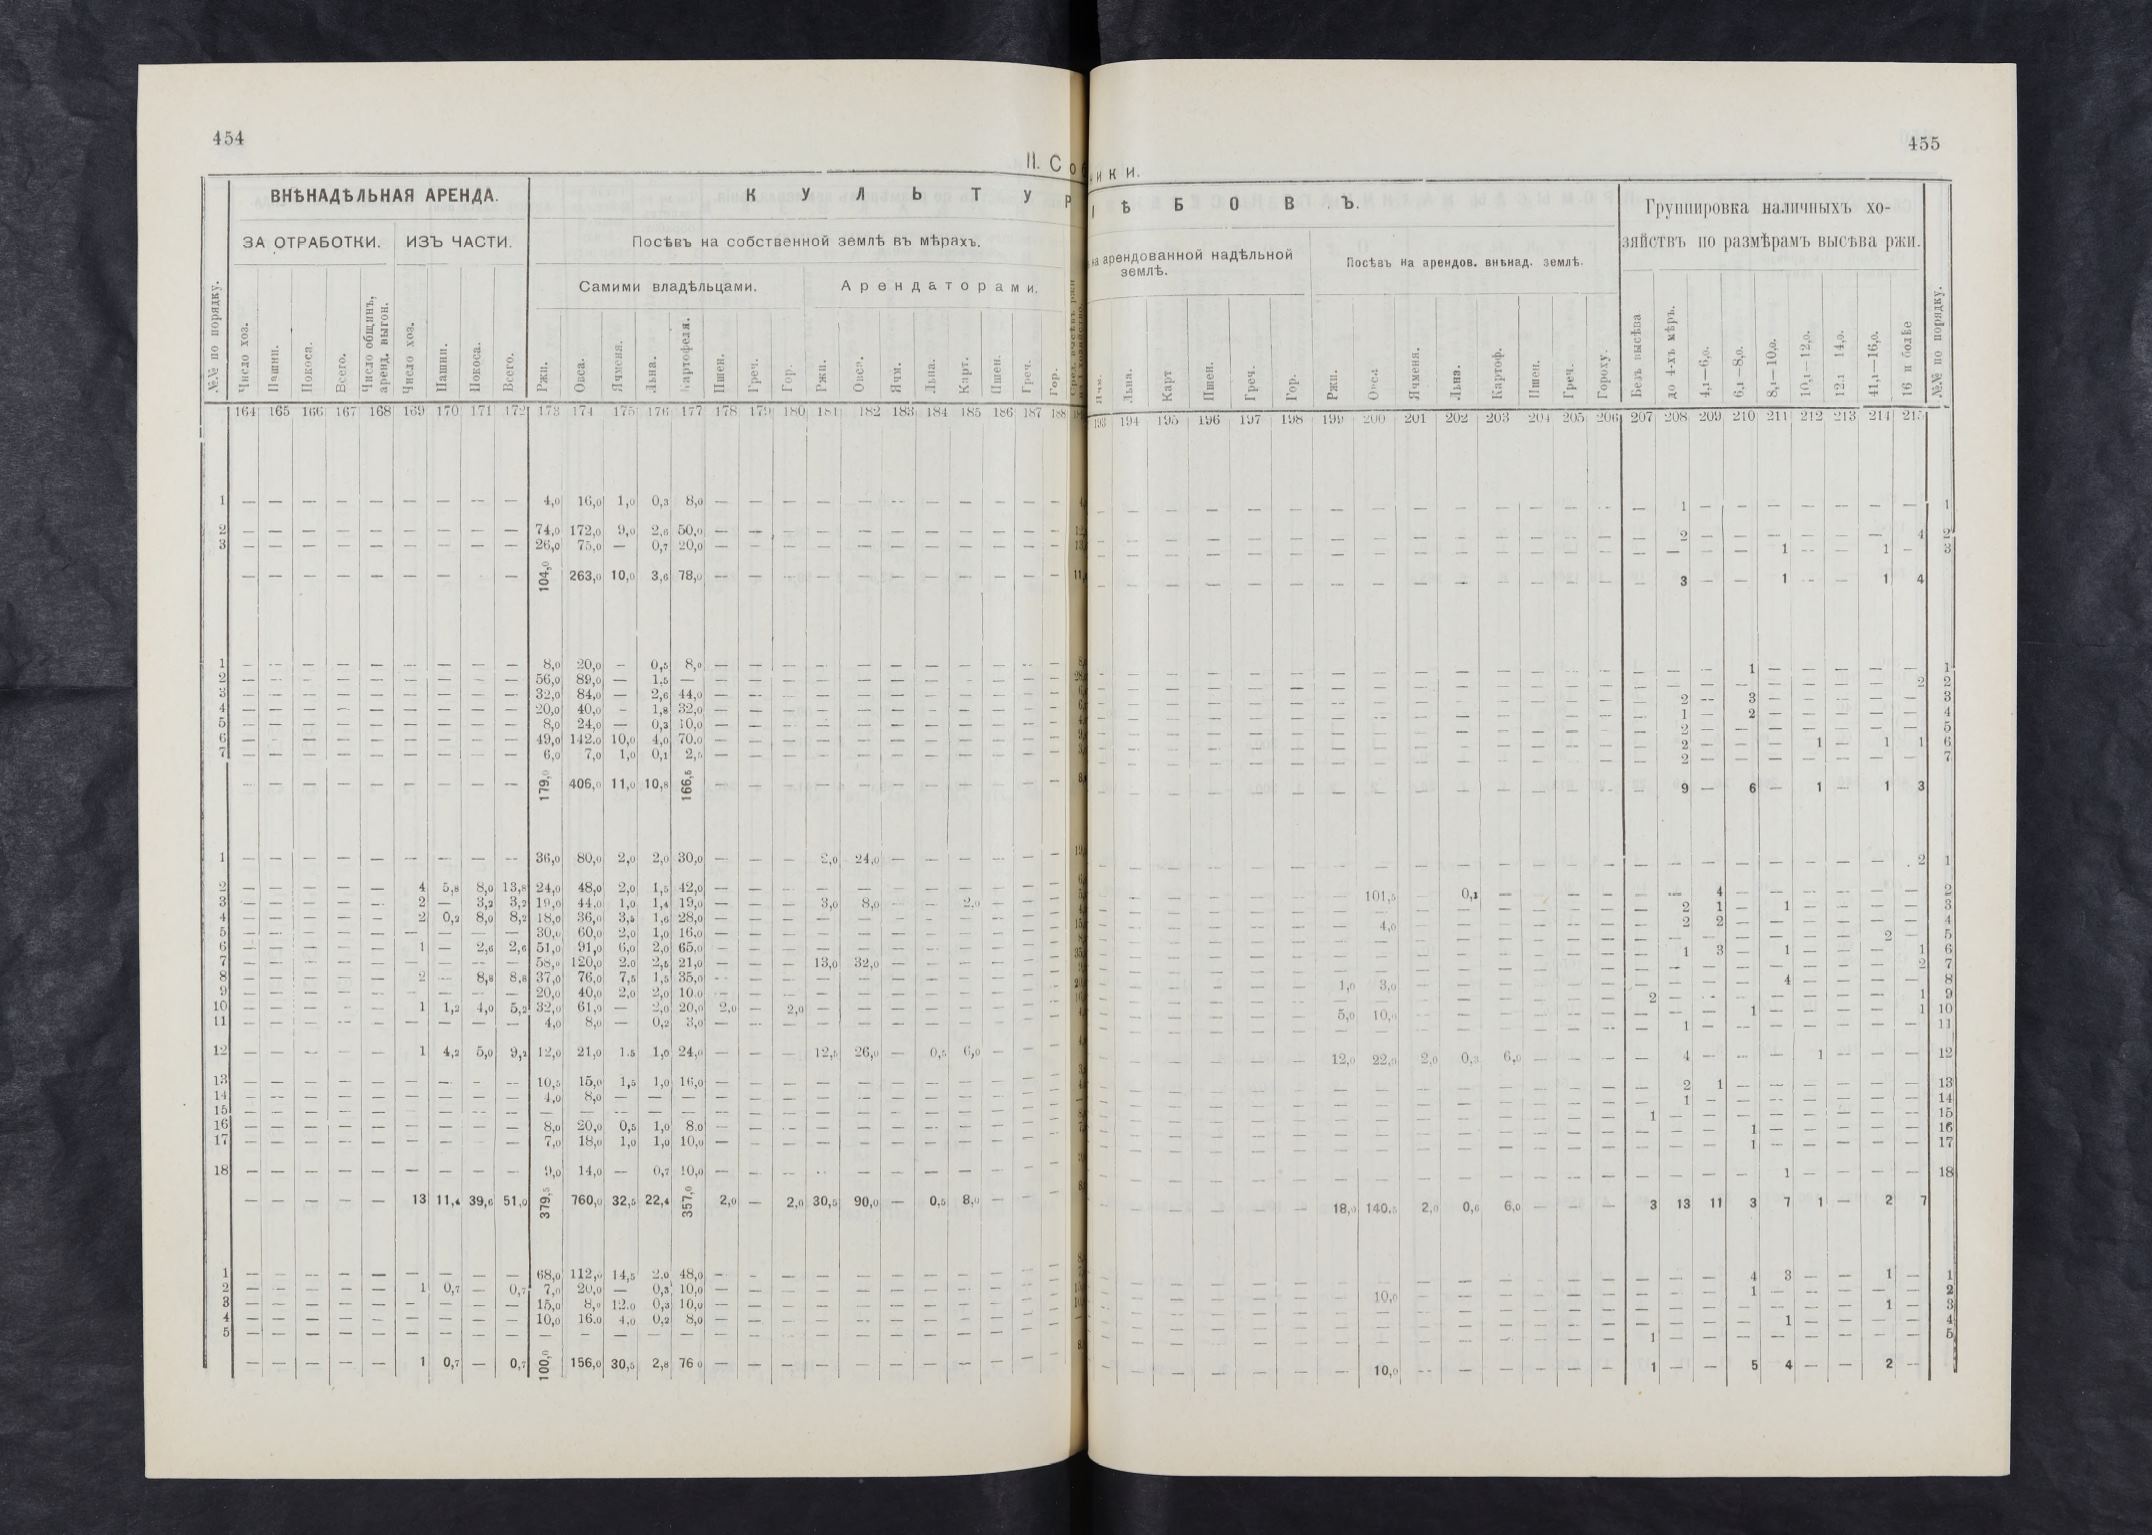 454
II. Соб
ВНѢНАДѢЛЬНАЯ АРЕНДА. К У Л Ь Т У Р
ЗА ОТРАБОТКИ. ИЗЪ ЧАСТИ. Посѣвъ на собственной землѣ въ мѣрахъ.
Самими владѣльцами. Арендаторами.
№№ по порядку. Число хоз. Пашни. Покоса. Всего. Число общинъ, аренд. выгон. Число хоз. Пашни. Покоса. Всего. Ржи. Овса. Ячменя. Льна. Картофеля. Пшен. Греч. Гор. Ржи. Овса. Ячм. Льна. Карт. Пшен. Греч. Гор.
164 165 166 167 168 169 170 171 172 173 174 175 176 177 178 179 180 181 182 183 184 185 186 187 188
1 — — — — — — — — — 4,0 16,0 1,0 0,3 8,0 — — — — — — — — — — —
2 — — — — — — — — — 74,0 172,0 9,0 2,6 50,0 — — — — — — — — — — —
3 — — — — — — — — — 26,0 75,0 — 0,7 20,0 — — — — — — — — — — —
— — — — — — — — — 104,0 263,0 10,0 3,6 78,0 — — — — — — — — — — —
1 — — — — — — — — — 8,0 20,0 — 0,5 8,0 — — — — — — — — — — —
2 — — — — — — — — — 56,0 89,0 — 1,5 — — — — — — — — — — — —
3 — — — — — — — — — 32,0 84,0 — 2,6 44,0 — — — — — — — — — — —
4 — — — — — — — — — 20,0 40,0 — 1,8 32,0 — — — — — — — — — — —
5 — — — — — — — — — 8,0 24,0 — 0,3 10,0 — — — — — — — — — — —
6 — — — — — — — — — 49,0 142,0 10,0 4,0 70,0 — — — — — — — — — — —
7 — — — — — — — — — 6,0 7,0 1,0 0,1 2,5 — — — — — — — — — — —
— — — — — — — — — 179,0 406,0 11,0 10,8 166,5 — — — — — — — — — — —
1 — — — — — — — — — 36,0 80,0 2,0 2,0 30,0 — — — 2,0 24,0 — — — — — —
2 — — — — — 4 5,8 8,0 13,8 24,0 48,0 2,0 1,5 42,0 — — — — — — — — — — —
3 — — — — — 2 — 3,2 3,2 19,0 44,0 1,0 1,4 19,0 — — — 3,0 8,0 — — 2,0 — — —
4 — — — — — 2 0,2 8,0 8,2 18,0 36,0 3,5 1,6 28,0 — — — — — — — — — — —
5 — — — — — — — — — 30,0 60,0 2,0 1,0 16,0 — — — — — — — — — — —
6 — — — — — 1 — 2,6 2,6 51,0 91,0 6,0 2,0 65,0 — — — — — — — — — — —
7 — — — — — — — — — 58,0 120,0 2,0 2,5 21,0 — — — 13,0 32,0 — — — — — —
8 — — — — — 2 — 8,8 8,8 37,0 76,0 7,5 1,5 35,0 — — — — — — — — — — —
9 — — — — — — — — — 20,0 40,0 2,0 2,0 10,0 — — — — — — — — — — —
10 — — — — — 1 1,2 4,0 5,2 32,0 61,0 — 2,0 20,0 2,0 — 2,0 — — — — — — — —
11 — — — — — — — — — 4,0 8,0 — 0,2 3,0 — — — — — — — — — — —
12 — — — — — 1 4,2 5,0 9,2 12,0 21,0 1,5 1,0 24,0 — — — 12,5 26,0 — 0,5 6,0 — — —
13 — — — — — — — — — 10,5 15,0 1,5 1,0 16,0 — — — — — — — — — — —
14 — — — — — — — — — 4,0 8,0 — — — — — — — — — — — — — —
15 — — — — — — — — — — — — — — — — — — — — — — — — —
16 — — — — — — — — — 8,0 20,0 0,5 1,0 8,0 — — — — — — — — — — —
17 — — — — — — — — — 7,0 18,0 1,0 1,0 10,0 — — — — — — — — — — —
18 — — — — — — — — — 9,0 14,0 — 0,7 10,0 — — — — — — — — — — —
— — — — — 13 11,4 39,6 51,0 379,5 760,0 32,5 22,4 357,0 2,0 — 2,0 30,5 90,0 — 0,5 8,0 — — —
1 — — — — — — — — — 68,0 112,0 14,5 2,0 48,0 — — — — — — — — — — —
2 — — — — — 1 0,7 — 0,7 7,0 20,0 — 0,3 10,0 — — — — — — — — — — —
3 — — — — — — — — — 15,0 8,0 12,0 0,3 10,0 — — — — — — — — — — —
4 — — — — — — — — — 10,0 16,0 4,0 0,2 8,0 — — — — — — — — — — —
5 — — — — — — — — — — — — — — — — — — — — — — — — —
— — — — — 1 0,7 — 0,7 100,0 156,0 30,5 2,8 76 0 — — — — — — — — — — —
455
ики.
Ѣ Б О В Ъ. Группировка наличныхъ хо-
зяйствъ по размѣрамъ высѣва ржи.
на арендованной надѣльной
землѣ.
Посѣвъ на арендов. внѣнад. землѣ.
Ячм. Льна. Карт Пшен. Греч. Гор. Ржи. Овса Ячменя. Льна. Картоф. Пшен. Греч. Гороху. Безъ высѣва до 4-хъ мѣръ. 4,1—6,0. 6,1—8,0. 8,1—10,0. 10,1—12,0. 12,1 14,0. 41,1—16,0. 16 и болѣе №№ по порядку.
193 194 195 196 197 198 199 200 201 202 203 204 205 206 207 208 209 210 211 212 213 214 215
— — — — — — — — — — — — — — — 1 — — — — — — — 1
— — — — — — — — — — — — — — — 2 — — — — — — 4 2
— — — — — — — — — — — — — — — — — — 1 — — 1 — 3
— — — — — — — — — — — — — — — 3 — — 1 — — 1 4
— — — — — — — — — — — — — — — — — 1 — — — — — 1
— — — — — — — — — — — — — — — — — — — — — — 2 2
— — — — — — — — — — — — — — — 2 — 3 — — — — — 3
— — — — — — — — — — — — — — — 1 — 2 — — — — — 4
— — — — — — — — — — — — — — — 2 — — — — — — — 5
— — — — — — — — — — — — — — — 2 — — — 1 — 1 1 6
— — — — — — — — — — — — — — — 2 — — — — — — — 7
— — — — — — — — — — — — — — — 9 — 6 — 1 — 1 3
— — — — — — — — — — — — — — — — — — — — — — 2 1
— — — — — — — 101,5 — 0,3 — — — — — — 4 — — — — — — 2
— — — — — — — — — — — — — — — 2 1 — 1 — — — — 3
— — — — — — — 4,0 — — — — — — — 2 2 — — — — — — 4
— — — — — — — — — — — — — — — — — — — — — 2 — 5
— — — — — — — — — — — — — — — 1 3 — 1 — — — 1 6
— — — — — — — — — — — — — — — — — — — — — — 2 7
— — — — — — 1,0 3,0 — — — — — — — — — — 4 — — — — 8
— — — — — — — — — — — — — — 2 — — — — — — — 1 9
— — — — — — 5,0 10,0 — — — — — — — — — 1 — — — — 1 10
— — — — — — — — — — — — — — — 1 — — — — — — — 11
— — — — — — 12,0 22,5 2,0 0,3 6,0 — — — — 4 — — — 1 — — — 12
— — — — — — — — — — — — — — — 2 1 — — — — — — 13
— — — — — — — — — — — — — — — 1 — — — — — — — 14
— — — — — — — — — — — — — — 1 — — — — — — — — 15
— — — — — — — — — — — — — — — — — 1 — — — — — 16
— — — — — — — — — — — — — — — — — 1 — — — — — 17
— — — — — — — — — — — — — — — — — — 1 — — — — 18
— — — — — — 18,0 140,5 2,0 0,6 6,0 — — — 3 13 11 3 7 1 — 2 7
— — — — — — — — — — — — — — — — — 4 3 — — 1 — 1
— — — — — — — 10,0 — — — — — — — — — 1 — — — — — 2
— — — — — — — — — — — — — — — — — — — — — 1 — 3
— — — — — — — — — — — — — — — — — — 1 — — — — 4
— — — — — — — — — — — — — — 1 — — — — — — — — 5
— — — — — — — 10,0 — — — — — — 1 — — 5 4 — — 2 —